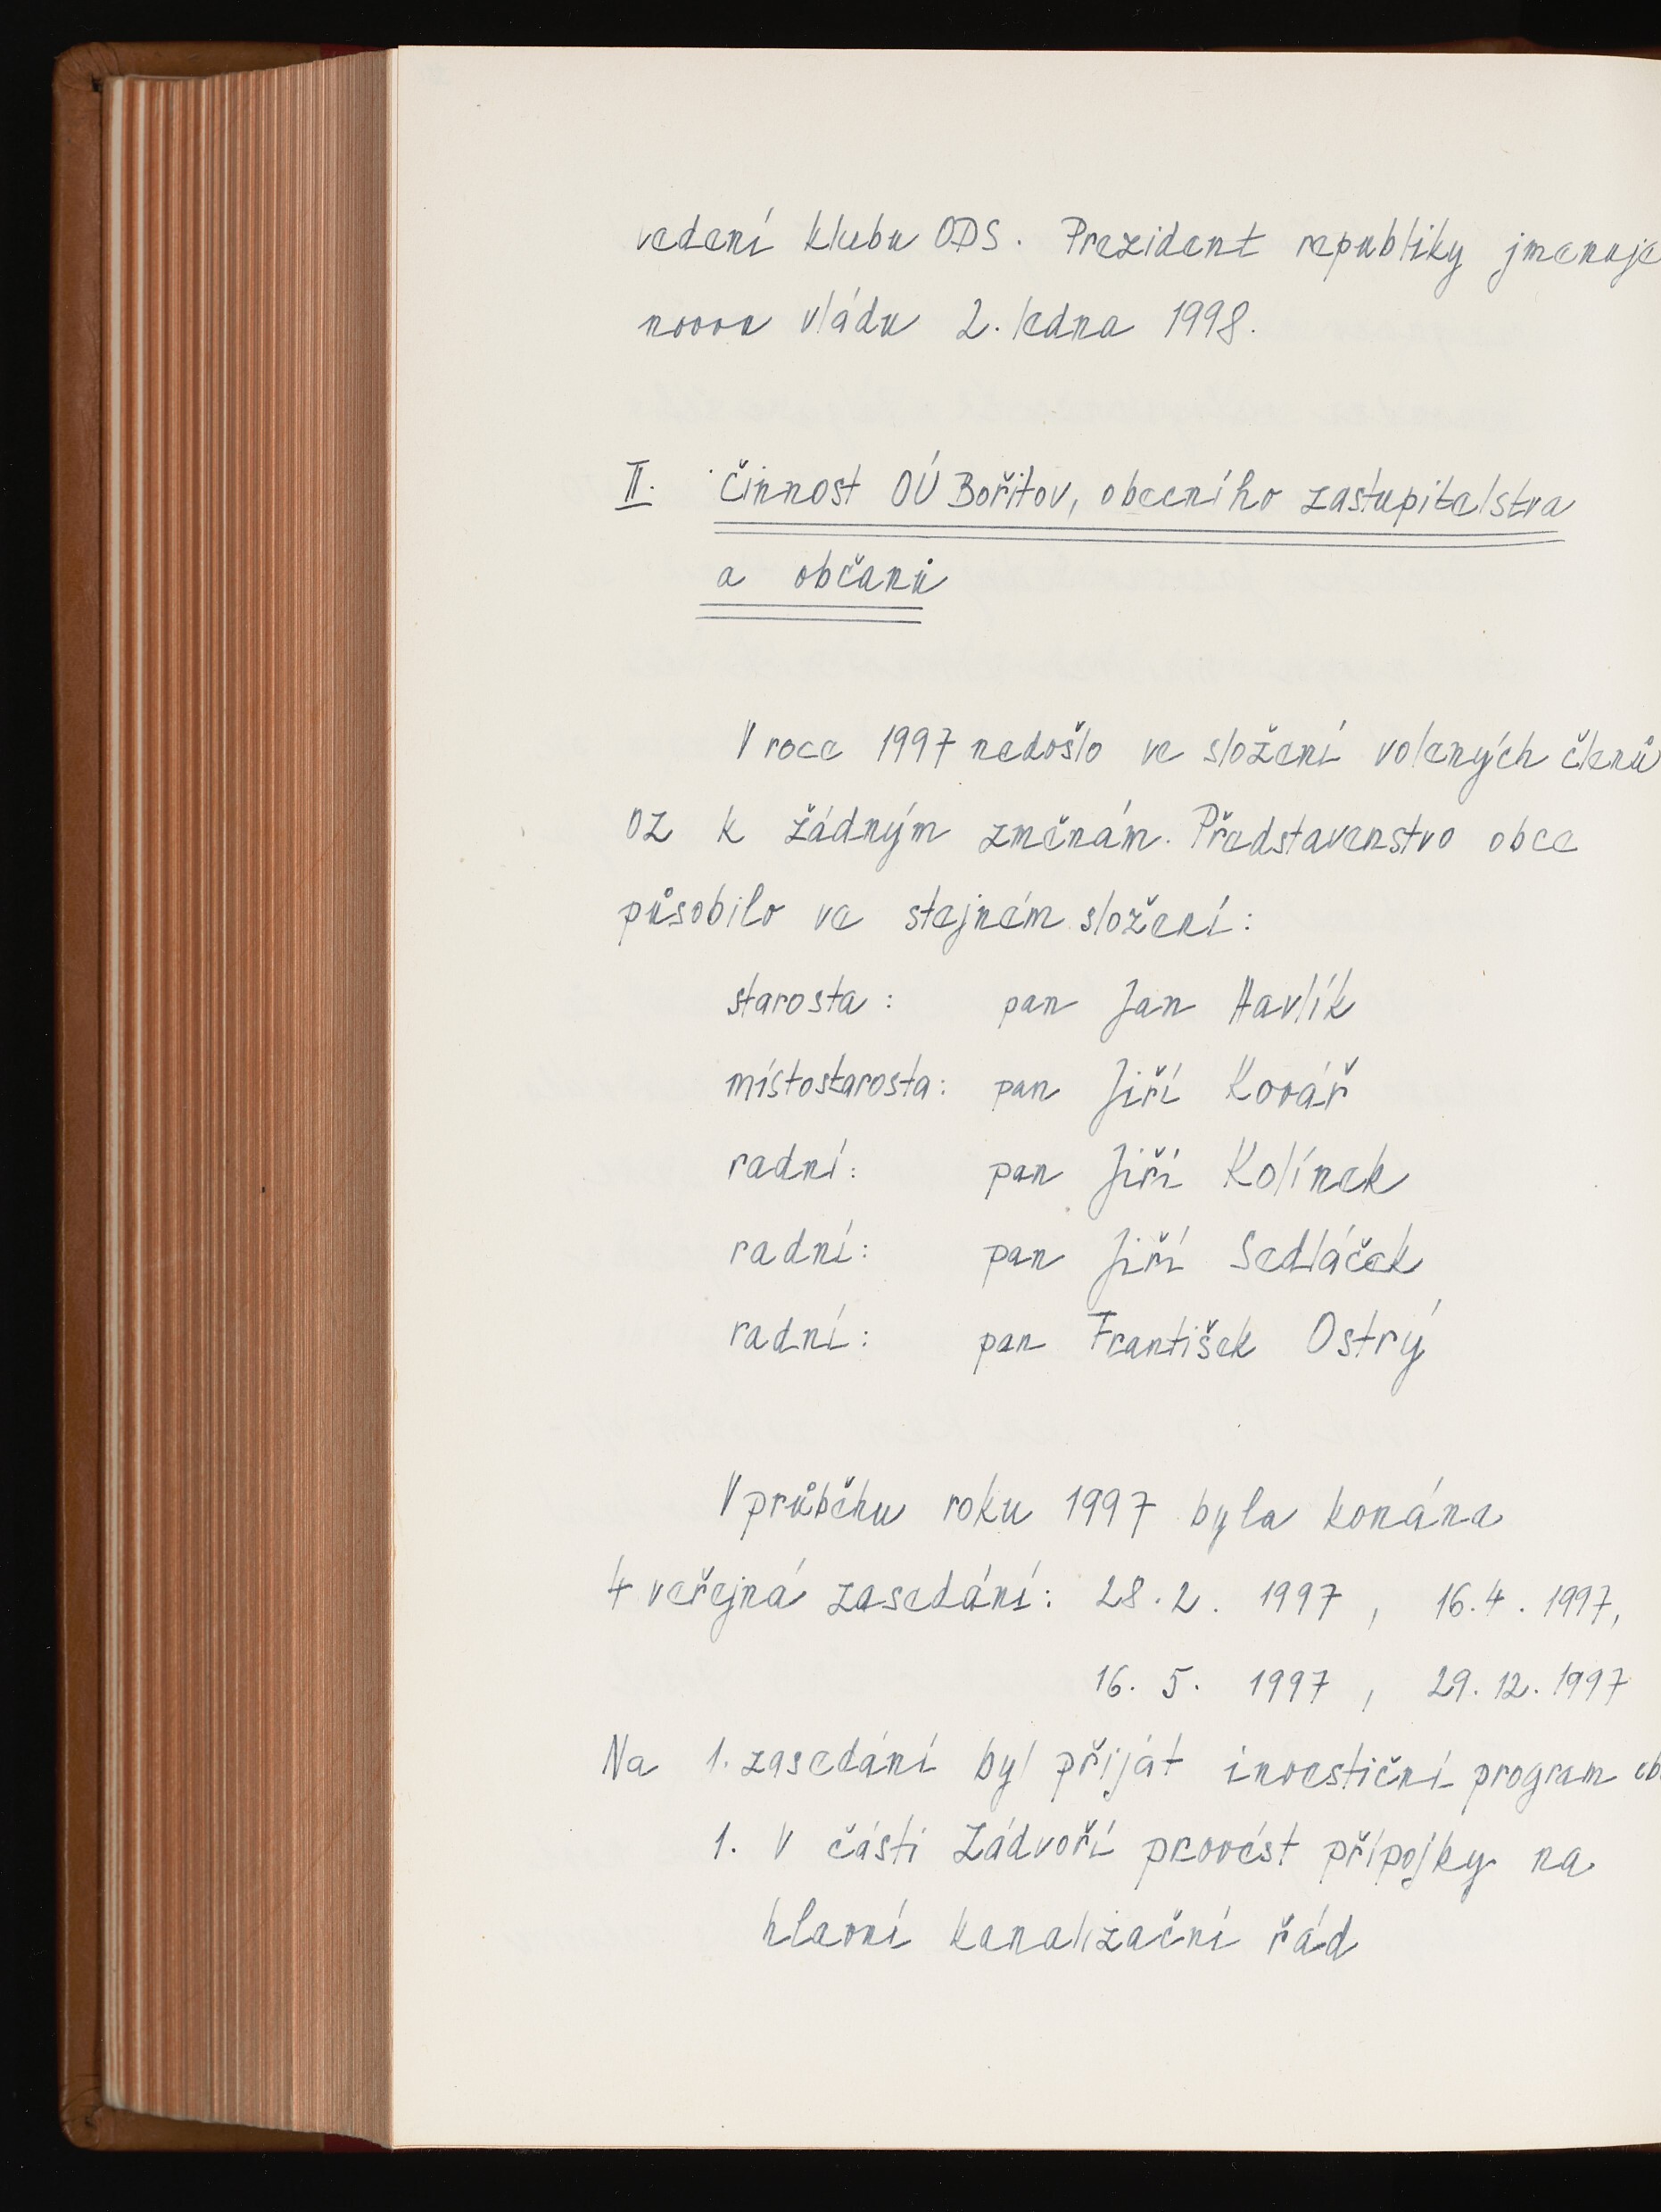 vedení klubu ODS. Prezident republiky jmenuje
novou vládu 2. ledna 1998.
II. Činnost OÚ Bořitov, obecního zastupitelstva
a občanů
V roce 1997 nedošlo ve složení volených členů
OZ k žádným změnám. Představenstvo obce
působilo ve stejném složení:
starosta: pan Jan Havlík
místostarosta: pan Jiří Kovář
radní: pan Jiří Kolínek
radní: pan Jiří Sedláček
radní: pan František Ostrý
V průběhu roku 1997 byla konána
4 veřejná zasedání: 28. 2. 1997, 16. 4. 1997,
16. 5. 1997, 29. 12. 1997
Na 1. zasedání byl přijat investiční program
1. V části Zádvoří provést přípojky na
hlavní kanalizační řád